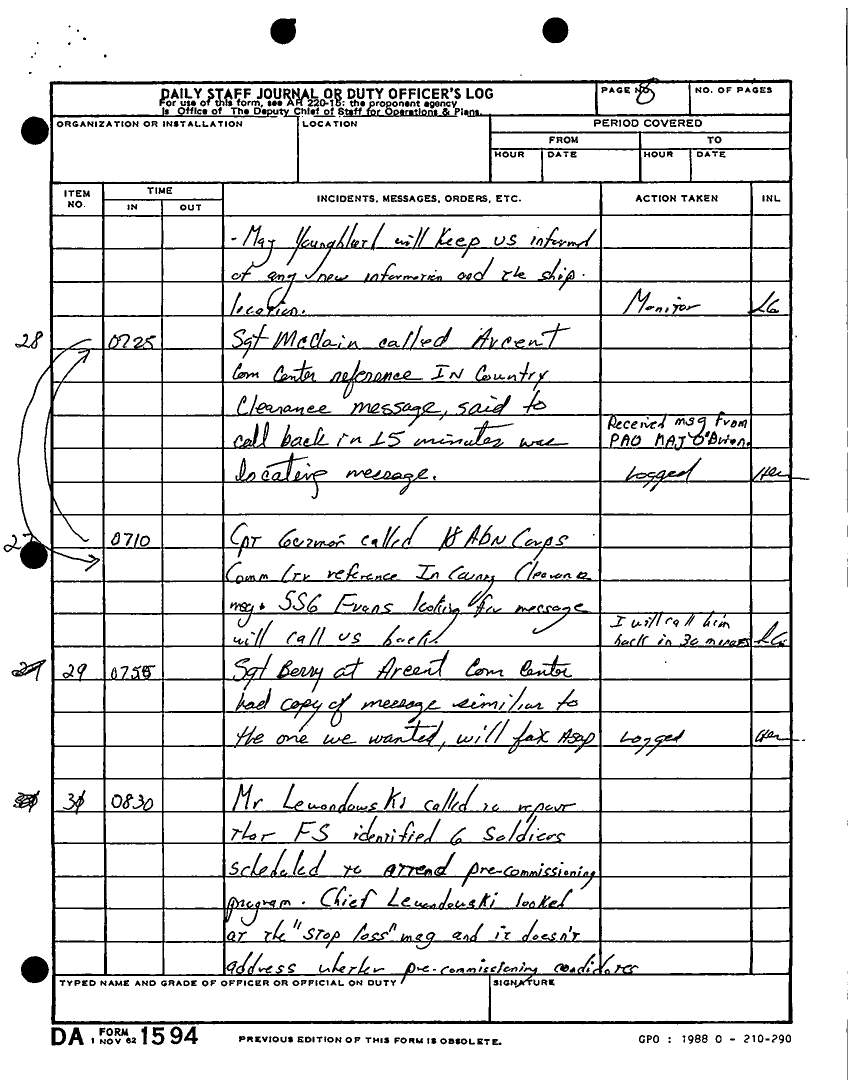 DAILY STAFF JOURNAL OR DUTY OFFICER'S LOG
For use of this form, see AR 220-15: the proponent agency
is Office of The Deputy Chief of Staff for Operations & Plans.
PAGE NO. 8
NO. OF PAGES
ORGANIZATION OR INSTALLATION
LOCATION
PERIOD COVERED
FROM
TO
HOUR
DATE
HOUR
DATE
ITEM NO.
TIME
IN
OUT
INCIDENTS, MESSAGES, ORDERS, ETC.
ACTION TAKEN
INL
- May Youngblard will keep us informed
of any new information and the ship.
location. Monitor LG
28 0725 Sgt McClain called Arcent
Com Center reference IN Country
Clearance message, said to
call back in 15 minutes was
Received msg from
PAO MAJ O'Brien.
locating message. Logged
27 0710 Cpt German called 18 Abn Corps
Comm Ctr reference In Country Clearance
msg. SSG Evans looking for message
will call us back.
I will call him
back in 30 minutes LG
29 0755 Sgt Berry at Arcent Com Center
had copy of message similiar to
the one we wanted, will fax Asap Logged
30 0830 Mr Lewandowski called to report
that FS identified 6 Soldiers
scheduled to attend pre-commissioning
program. Chief Lewandowski looked
at the "stop loss" msg and it doesn't
address whether pre-commissioning candidates
TYPED NAME AND GRADE OF OFFICER OR OFFICIAL ON DUTY
SIGNATURE
DA FORM 1594
1 NOV 62
PREVIOUS EDITION OF THIS FORM IS OBSOLETE.
GPO : 1988 O - 210-290